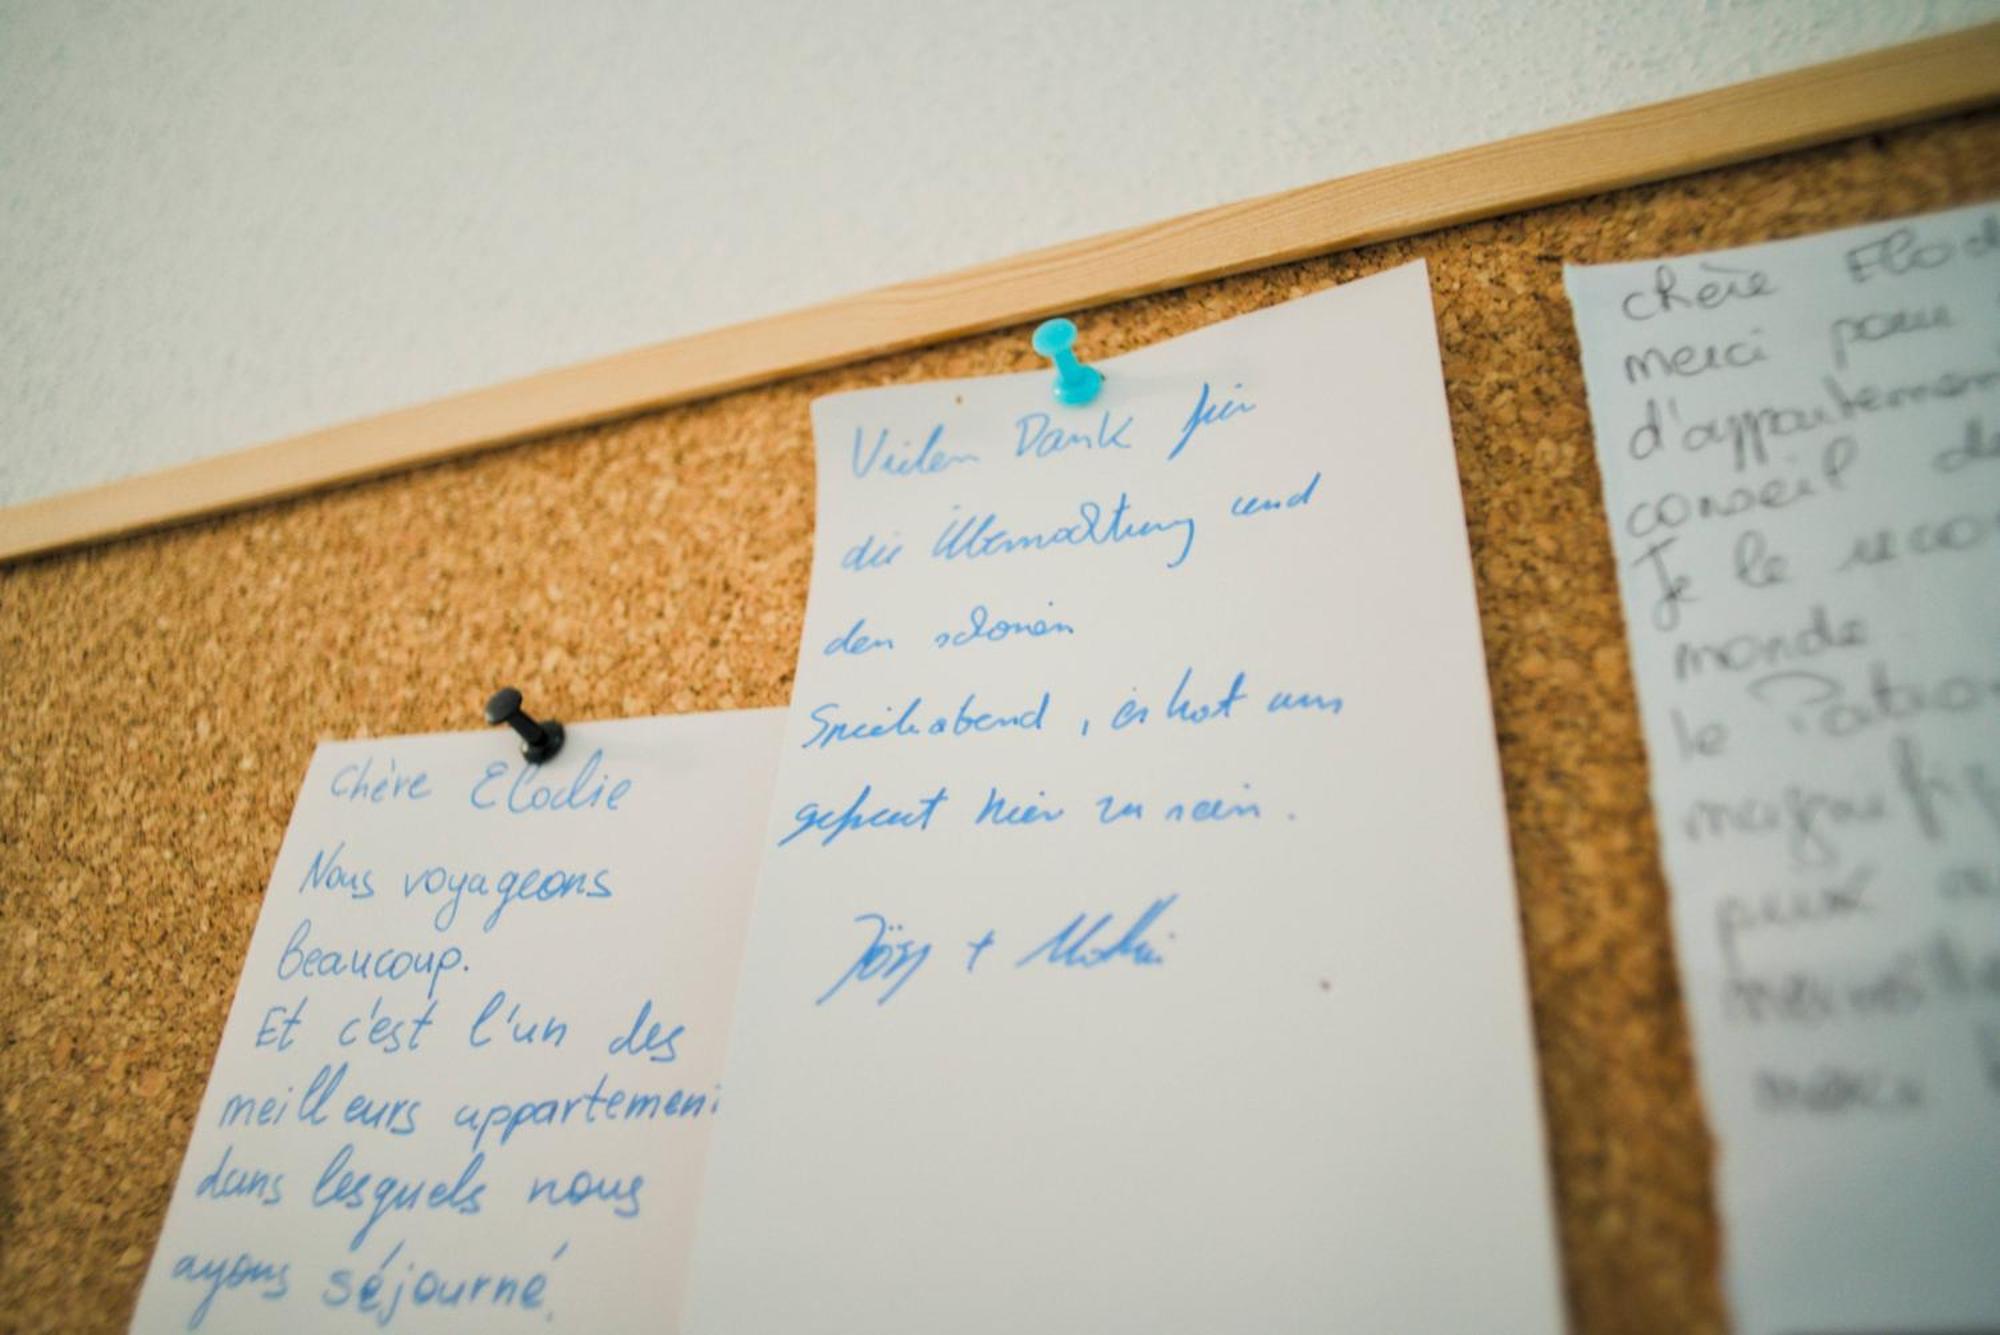 Chère Elodie
Nous voyageons
beaucoup.
Et c'est l'un des
meilleurs appartemen
dans lesquels nous
ayons séjourné.
Vielen Dank für
die Übernachtung und
den schönen
Spieleabend, es hat uns
gefreut hier zu sein.
Jörg +
chère Elod
merci pour
d'appartement
conseil de
Je le reco
monde
le Patro
magnifi